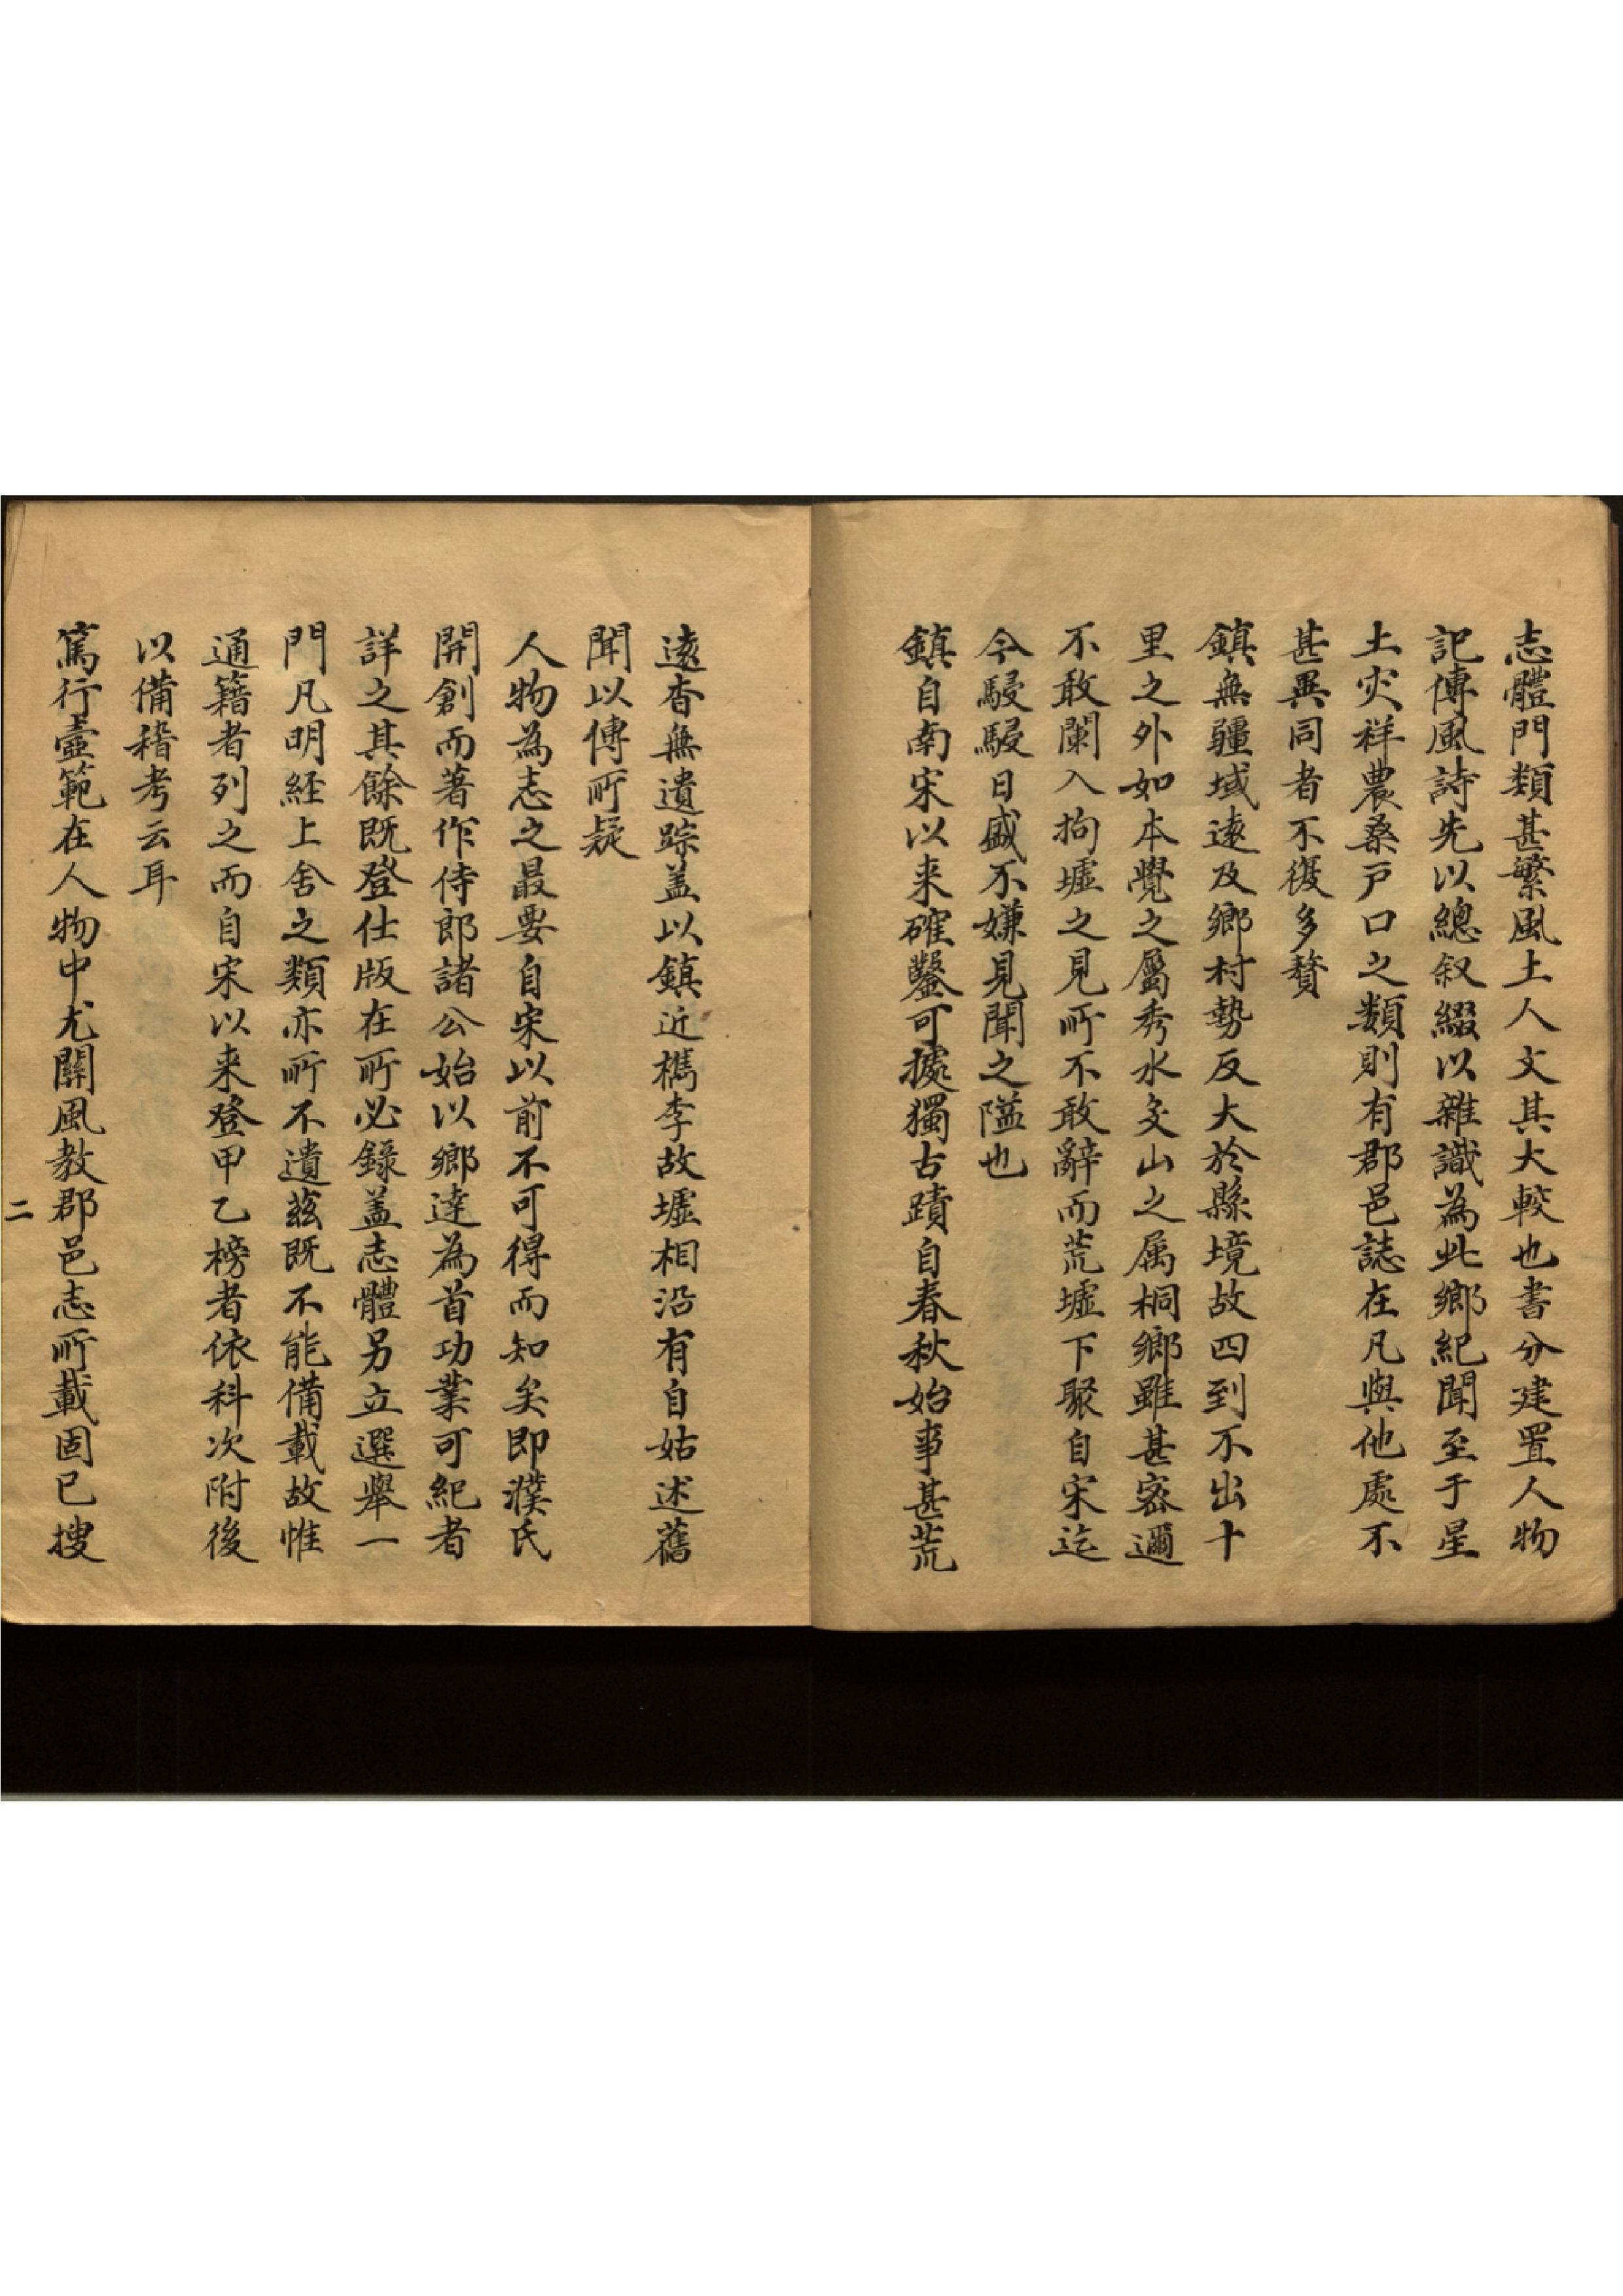 志體門類甚繁風土人文其大較也書分建置人物
記傳風詩先以總叙綴以雜識為此鄉紀聞至于星
土灾祥農桑戸口之類則有郡邑誌在凡與他處不
甚異同者不復多贅
鎮無疆域遠及鄉村勢反大於縣境故四到不出十
里之外如本覺之屬秀水殳山之属桐鄉雖甚宻邇
不敢闌入拘墟之見所不敢辭而荒墟下聚自宋迄
今駸駸日盛不嫌見聞之隘也
鎮自南宋以来確鑿可據獨古蹟自春秋始事甚荒
遠杳無遺踪盖以鎮近檇李故墟相沿有自姑述舊
聞以傳所疑
人物為志之最要自宋以前不可得而知矣即濮氏
開創而著作侍郎諸公始以鄉達為首功業可紀者
詳之其餘既登仕版在所必錄盖志體另立選舉一
門凡明經上舍之類亦所不遺茲既不能備載故惟
通籍者列之而自宋以来登甲乙榜者依科次附後
以備稽考云耳
篤行壼範在人物中尤關風教郡邑志所載固已搜
二